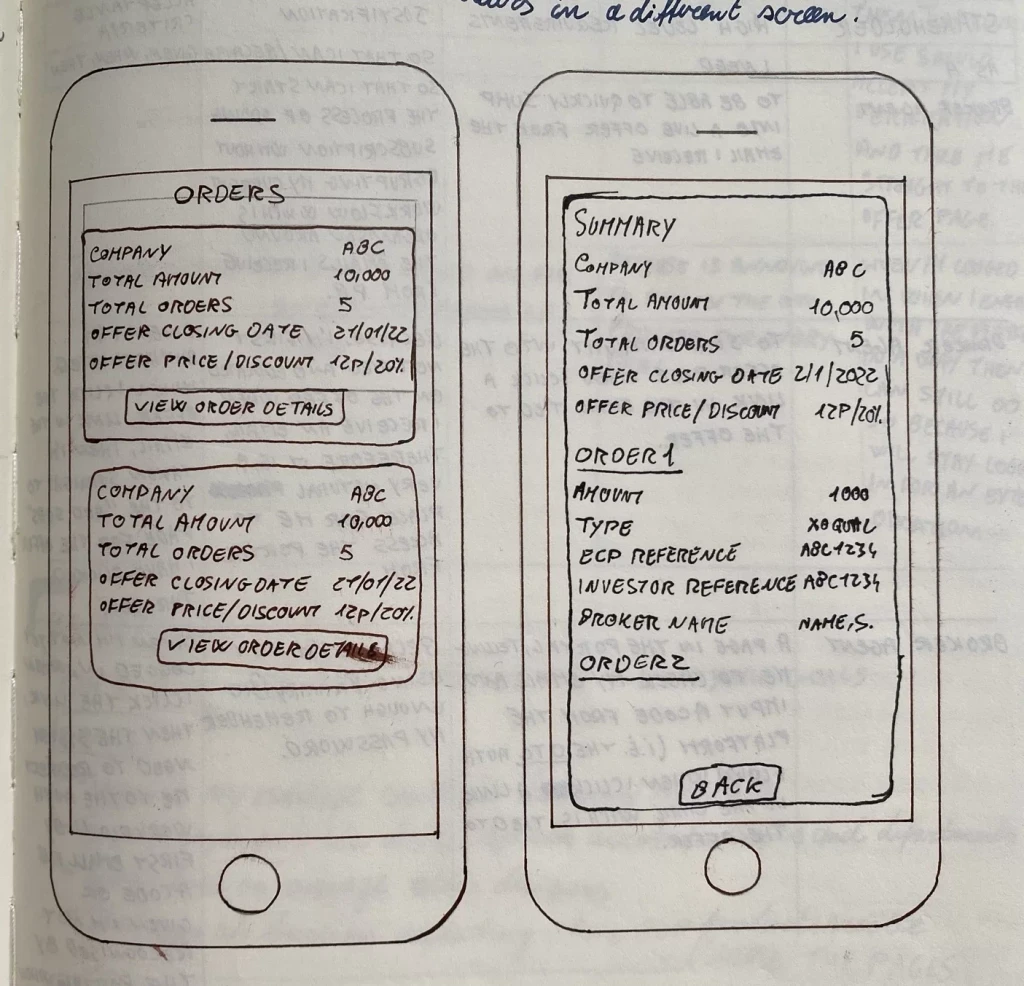 in a different screen.
ORDERS
COMPANY ABC
TOTAL AMOUNT 10,000
TOTAL ORDERS 5
OFFER CLOSING DATE 21/01/22
OFFER PRICE/DISCOUNT 12P/20%
VIEW ORDER DETAILS
COMPANY ABC
TOTAL AMOUNT 10,000
TOTAL ORDERS 5
OFFER CLOSING DATE 21/01/22
OFFER PRICE/DISCOUNT 12P/20%
VIEW ORDER DETAILS
SUMMARY
COMPANY ABC
TOTAL AMOUNT 10,000
TOTAL ORDERS 5
OFFER CLOSING DATE 2/1/2022
OFFER PRICE/DISCOUNT 12P/20%
ORDER 1
AMOUNT 1000
TYPE
ECP REFERENCE ABC1234
INVESTOR REFERENCE ABC1234
BROKER NAME NAME, S.
ORDER 2
BACK